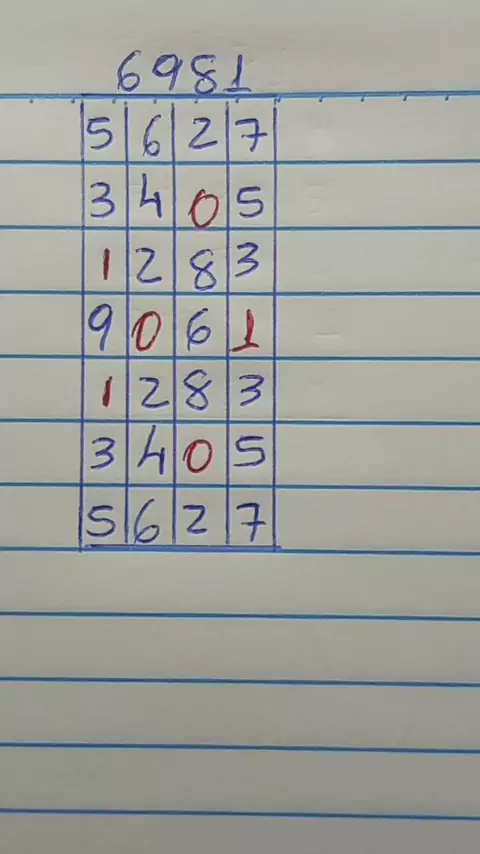 6981
5 6 2 7
3 4 0 5
1 2 8 3
9 0 6 1
1 2 8 3
3 4 0 5
5 6 2 7